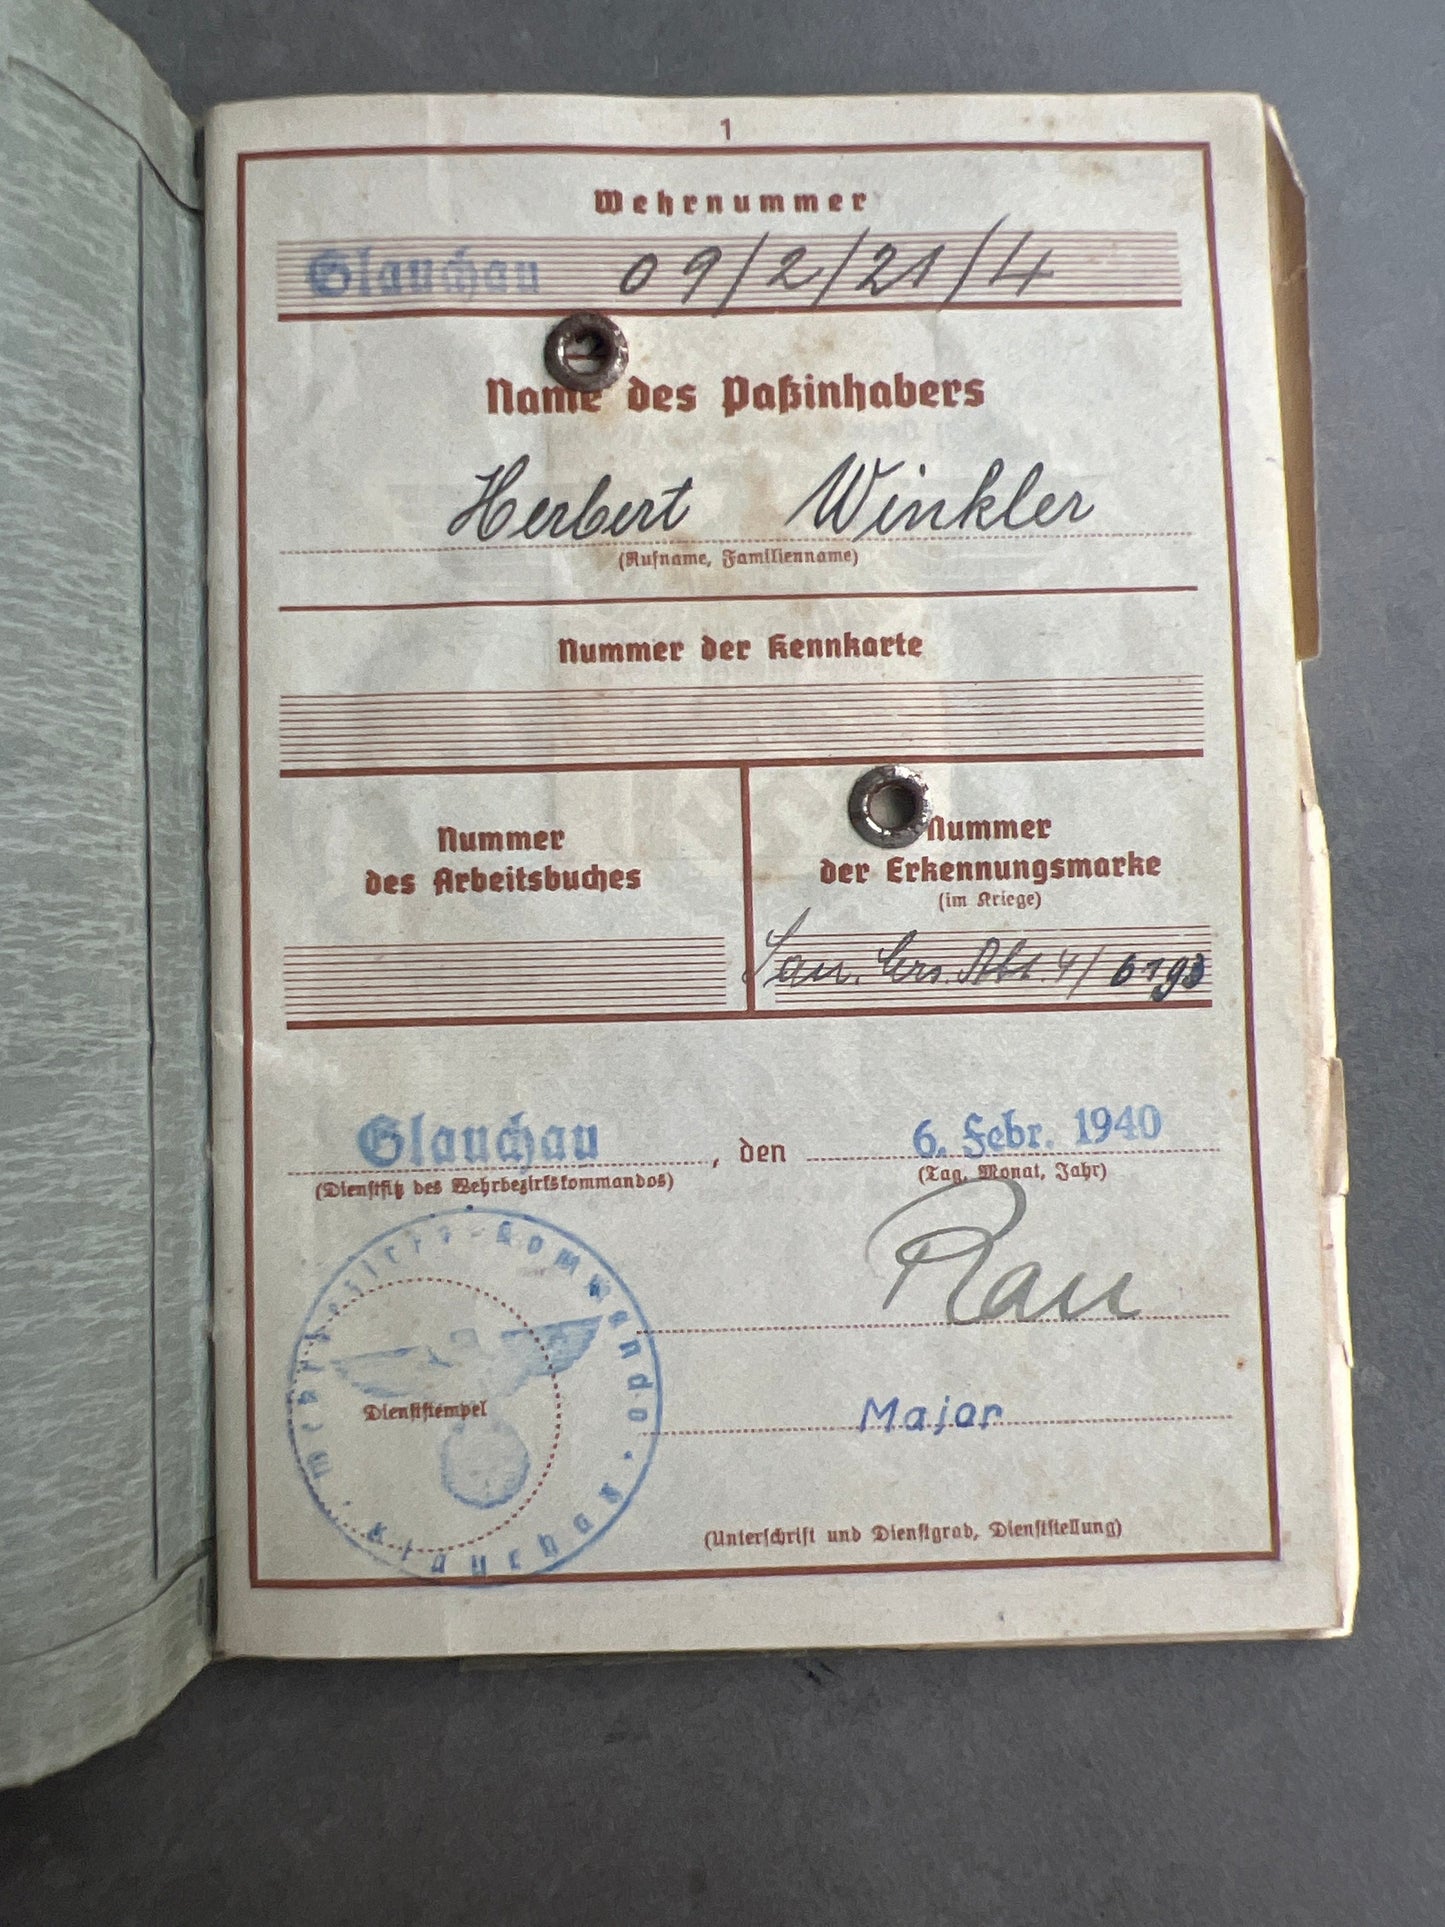 1
Wehrnummer
Glauchau 09/2/21/4
Name des Paßinhabers
Herbert Winkler
(Rufname, Familienname)
Nummer der Kennkarte
Nummer
des Arbeitsbuches
Nummer
der Erkennungsmarke
(im Kriege)
San. Ers. Abt. 4/ 6193
Glauchau, den 6. Febr. 1940
(Dienstsitz des Wehrbezirkskommandos)
(Tag, Monat, Jahr)
Wehrbezirks-Kommando Glauchau
Dienststempel
Rau
Major
(Unterschrift und Dienstgrad, Dienststellung)